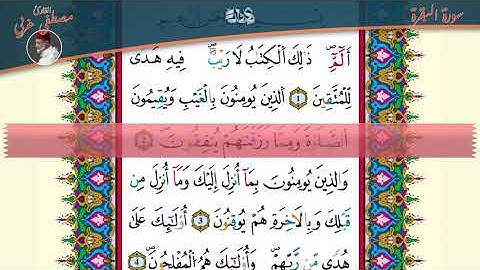 سورة البقرة
القارئ
مصطفى غربي
أَلَٓمِّٓۖ ذَٰلِكَ اَلْكِتَٰبُ لَا رَيْبَۖ فِيهِ هُدىٗ
لِّلْمُتَّقِينَ 1 اَلذِينَ يُومِنُونَ بِالْغَيْبِ وَيُقِيمُونَ
اَلصَّلَوٰةَ وَمِمَّا رَزَقْنَٰهُمْ يُنفِقُونَۖ 2
وَالذِينَ يُومِنُونَ بِمَآ أُنزِلَ إِلَيْكَ وَمَآ أُنزِلَ مِن
قَبْلِكَ وَبِالَاخِرَةِ هُمْ يُوقِنُونَۖ 3 أُوْلَٰٓئِكَ عَلَىٰ
هُدىٗ مِّن رَّبِّهِمْۖ وَأُوْلَٰٓئِكَ هُمُ اُلْمُفْلِحُونَۖ 4